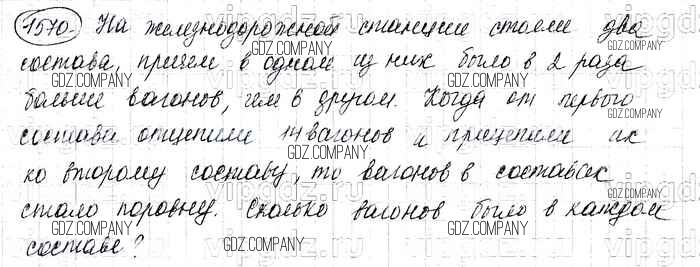 1570. На железнодорожной станции стояли два
GDZ.COMPANY GDZ.COMPANY
состава, причем в одном из них было в 2 раза
больше вагонов, чем в другом. Когда от первого
GDZ.COMPANY GDZ.COMPANY
состава отцепили 14 вагонов и прицепили их
GDZ.COMPANY
ко второму составу, то вагонов в составах
GDZ.COMPANY GDZ.COMPANY
стало поровну. Сколько вагонов было в каждом
составе?
GDZ.COMPANY GDZ.COMPANY